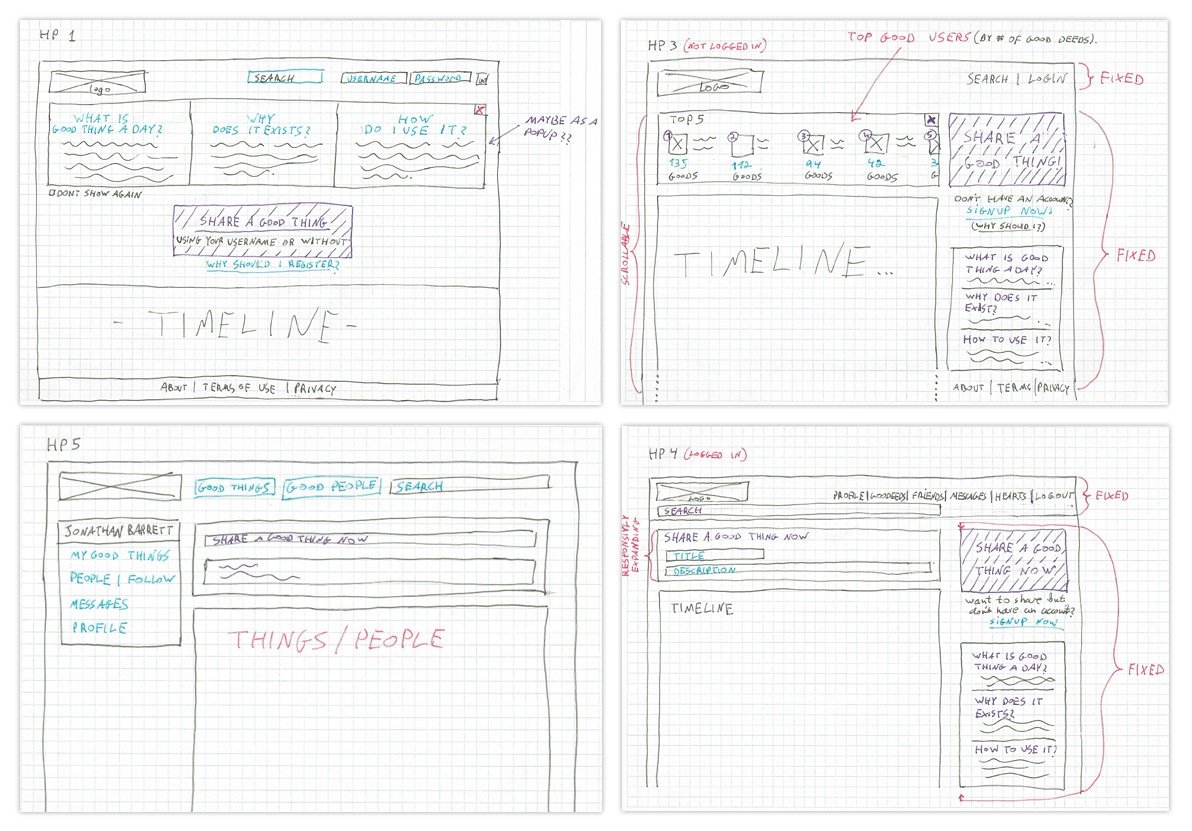 HP 1
LOGO
SEARCH
USERNAME
PASSWORD
X
WHAT IS
GOOD THING A DAY?
WHY
DOES IT EXISTS?
HOW
DO I USE IT?
MAYBE AS A
POPUP??
DON'T SHOW AGAIN
SHARE A GOOD THING
USING YOUR USERNAME OR WITHOUT
WHY SHOULD I REGISTER?
- TIMELINE -
ABOUT | TERMS OF USE | PRIVACY
HP 3 (NOT LOGGED IN)
TOP GOOD USERS (BY # OF GOOD DEEDS).
LOGO
SEARCH | LOGIN
FIXED
TOP 5
X
1
2
3
4
5
135
112
94
42
3
GOODS
GOODS
GOODS
GOODS
G
SHARE A
GOOD THING!
DON'T HAVE AN ACCOUNT?
SIGNUP NOW!
(WHY SHOULD I?)
SCROLLABLE
TIMELINE...
WHAT IS GOOD
THING A DAY?
WHY DOES IT
EXIST?
HOW TO USE IT?
FIXED
ABOUT | TERMS | PRIVACY
HP 5
GOOD THINGS
GOOD PEOPLE
SEARCH
JONATHAN BARRETT
MY GOOD THINGS
PEOPLE I FOLLOW
MESSAGES
PROFILE
SHARE A GOOD THING NOW
THINGS/PEOPLE
HP 4 (LOGGED IN)
LOGO
PROFILE | GOODEEDS | FRIENDS | MESSAGES | HEARTS | LOGOUT
FIXED
SEARCH
RESPONSIVLY
EXPANDING
SHARE A GOOD THING NOW
TITLE
DESCRIPTION
TIMELINE
SHARE A GOOD
THING NOW
want to share but
don't have an account?
SIGNUP NOW
WHAT IS GOOD
THING A DAY?
WHY DOES IT
EXISTS?
HOW TO USE IT?
FIXED